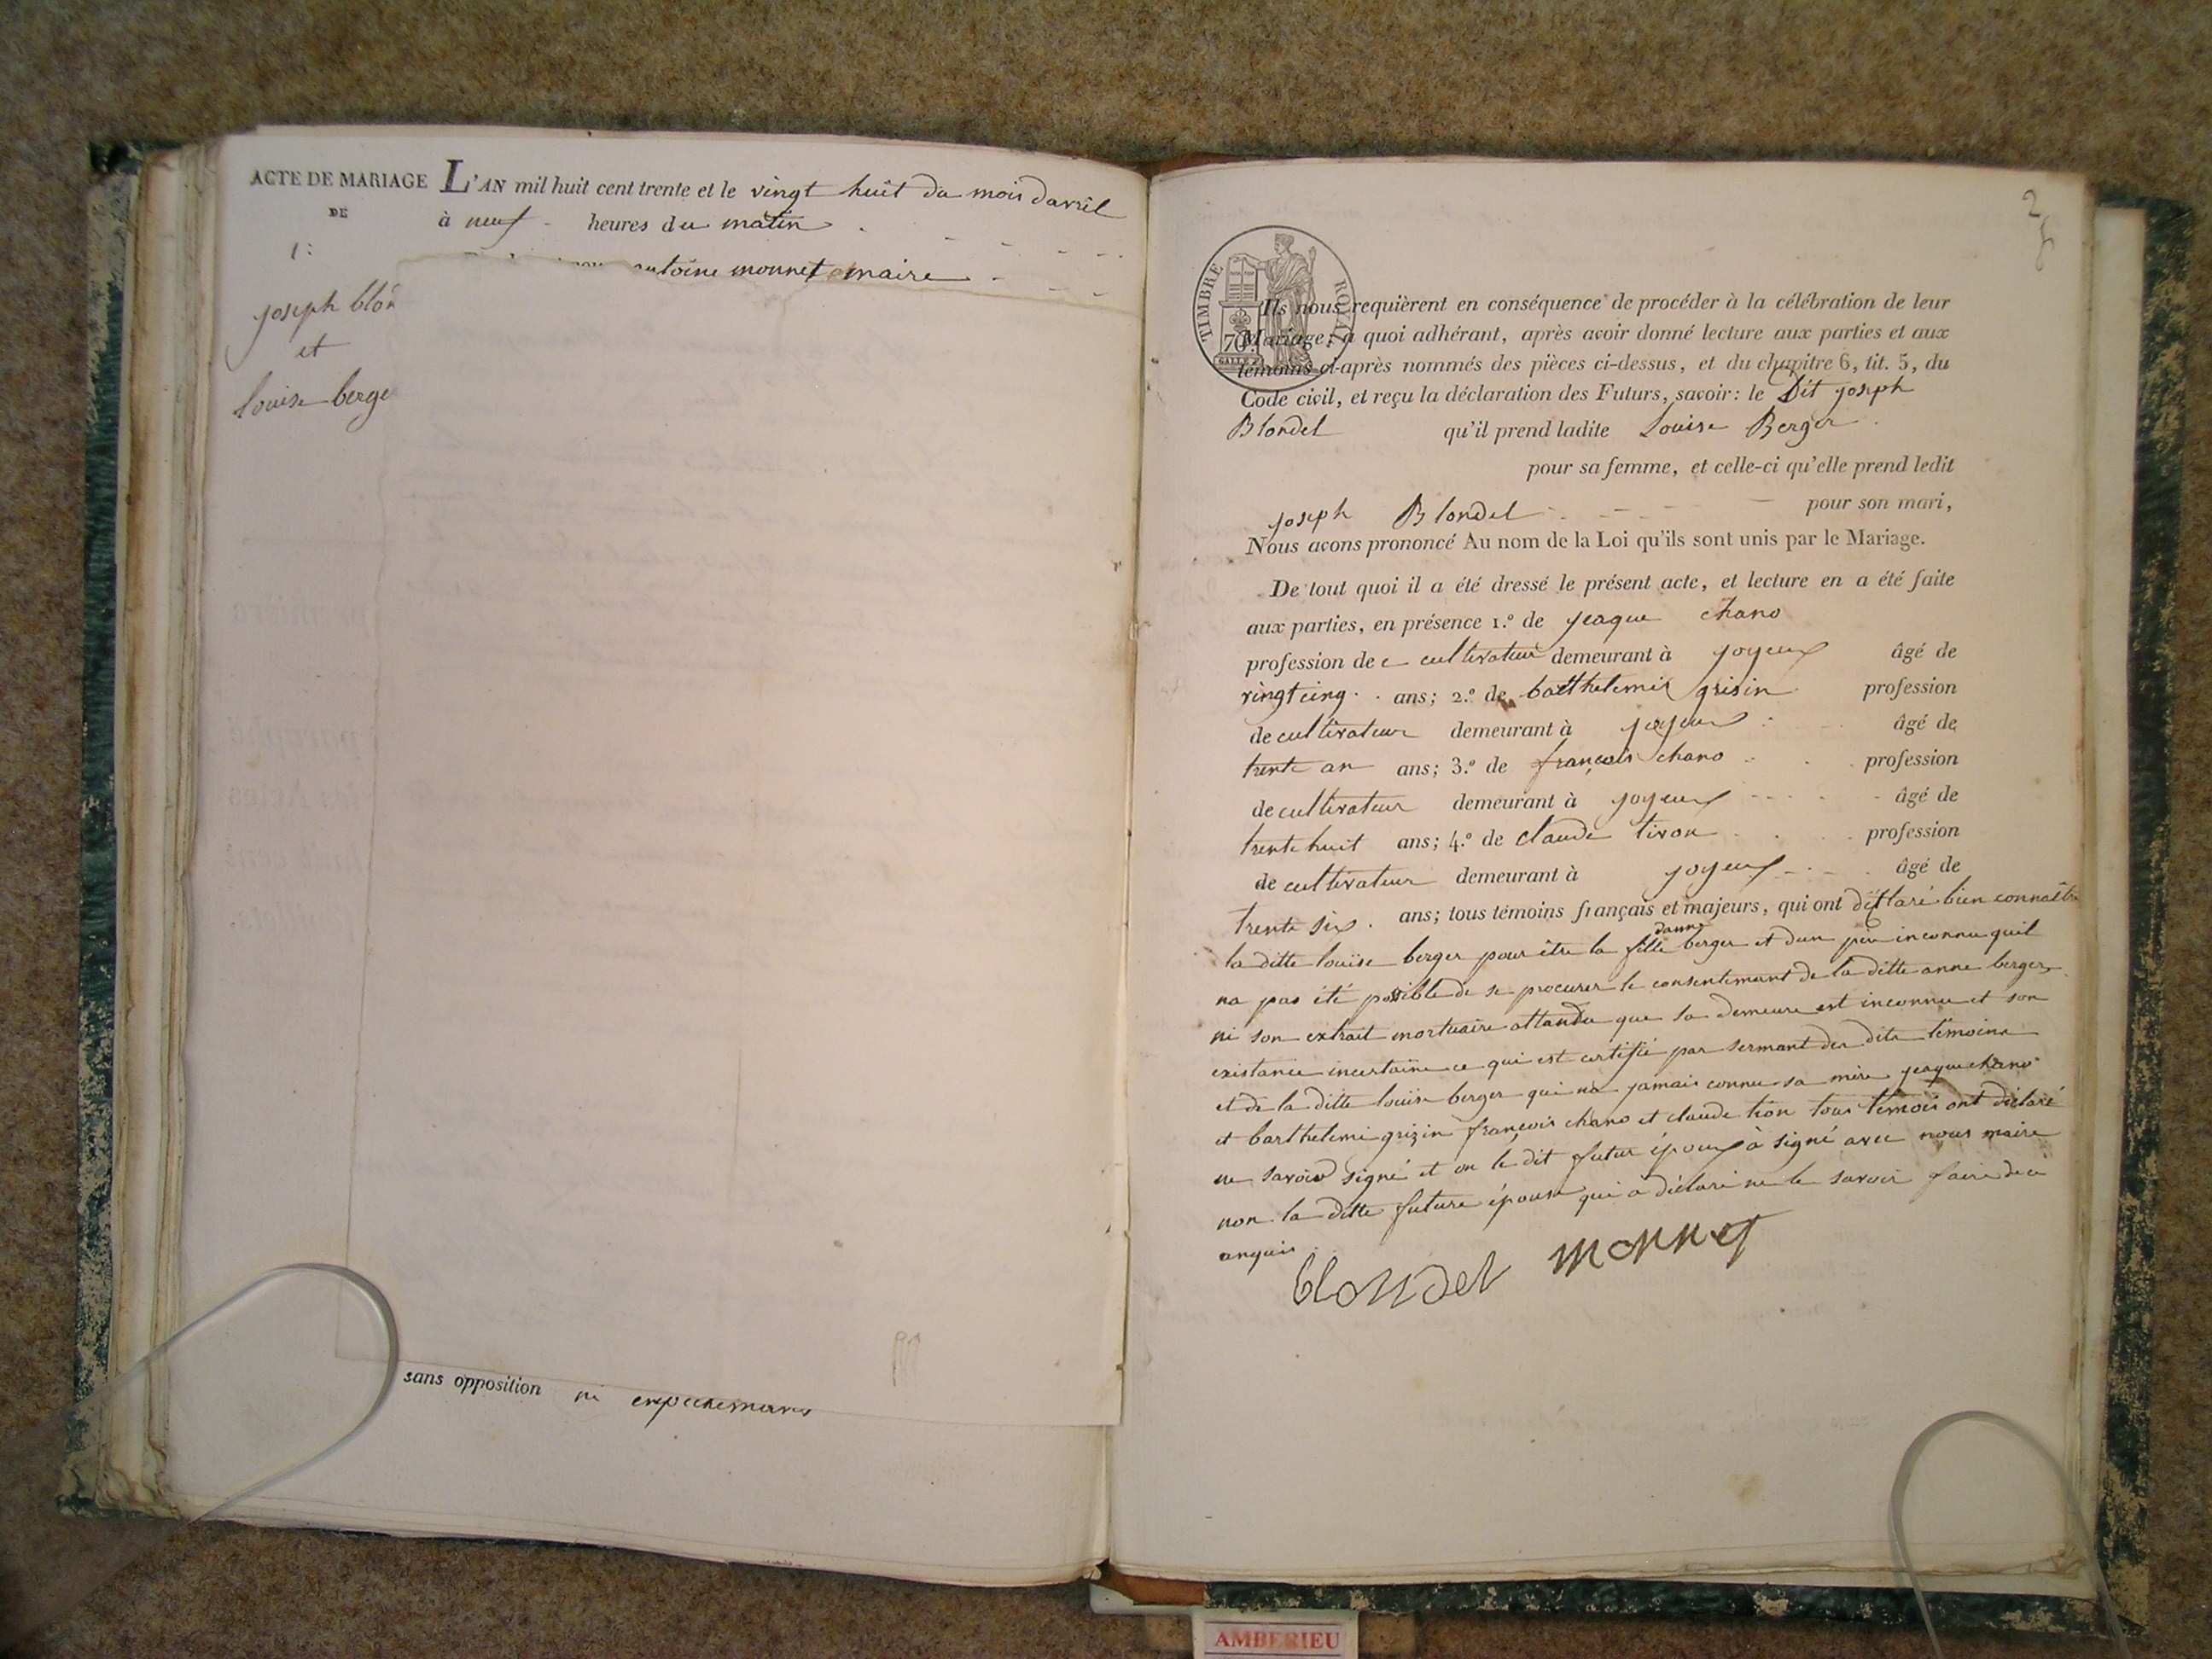 ACTE DE MARIAGE
DE
1:
joseph blon
et
louise berge
L'AN mil huit cent trente et le vingt huit du mois davril
à neuf heures du matin
antoine monnet maire
sans opposition ni empechemans
2
TIMBRE ROYAL
70
Ils nous requièrent en conséquence de procéder à la célébration de leur
Mariage; à quoi adhérant, après avoir donné lecture aux parties et aux
témoins ci-après nommés des pièces ci-dessus, et du chapitre 6, tit. 5, du
Code civil, et reçu la déclaration des Futurs, savoir: le Dit joseph
Blondel qu'il prend ladite Louise Berger
pour sa femme, et celle-ci qu'elle prend ledit
joseph Blondel pour son mari,
Nous avons prononcé Au nom de la Loi qu'ils sont unis par le Mariage.
De tout quoi il a été dressé le présent acte, et lecture en a été faite
aux parties, en présence 1.º de jeaque chano
profession de cultivateur demeurant à joyeux âgé de
vingt cinq ans; 2.º de barthelemie grisin profession
de cultivateur demeurant à joyeux âgé de
trente an ans; 3.º de françois chano profession
de cultivateur demeurant à joyeux âgé de
trente huit ans; 4.º de claude tivon profession
de cultivateur demeurant à joyeux âgé de
trente six ans; tous témoins français et majeurs, qui ont déclaré bien connaître
la ditte louise berger pour être la fille danne berger et dun père inconnu quil
na pas été possible de se procurer le consentement de la ditte anne berger
ni son extrait mortuaire attandu que sa demeure est inconnue et son
existance incertaine ce qui est certifié par sermant des dits témoins
et de la ditte louise berger qui na jamais connu sa mère jeaque chano
et barthelemi grizin françois chano et claude tion tous témois ont déclaré
ne savoir signé et on le dit futur époux à signé avec nous maire
non la ditte future épouse qui a déclaré ne le savoir faire de ce
anquis
blondel monnet
AMBERIEU